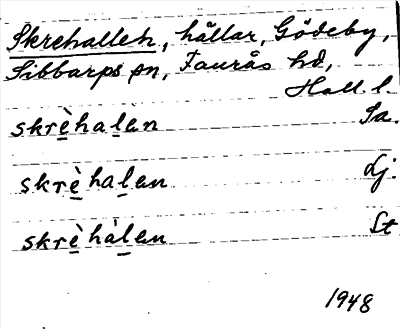 Skrehallen, hällar, Gödeby,
Sibbarps sn, Faurås hd,
Hall. l.
skrèhalan Sa.
skrèhalan dj.
skrèhàlan St
1948